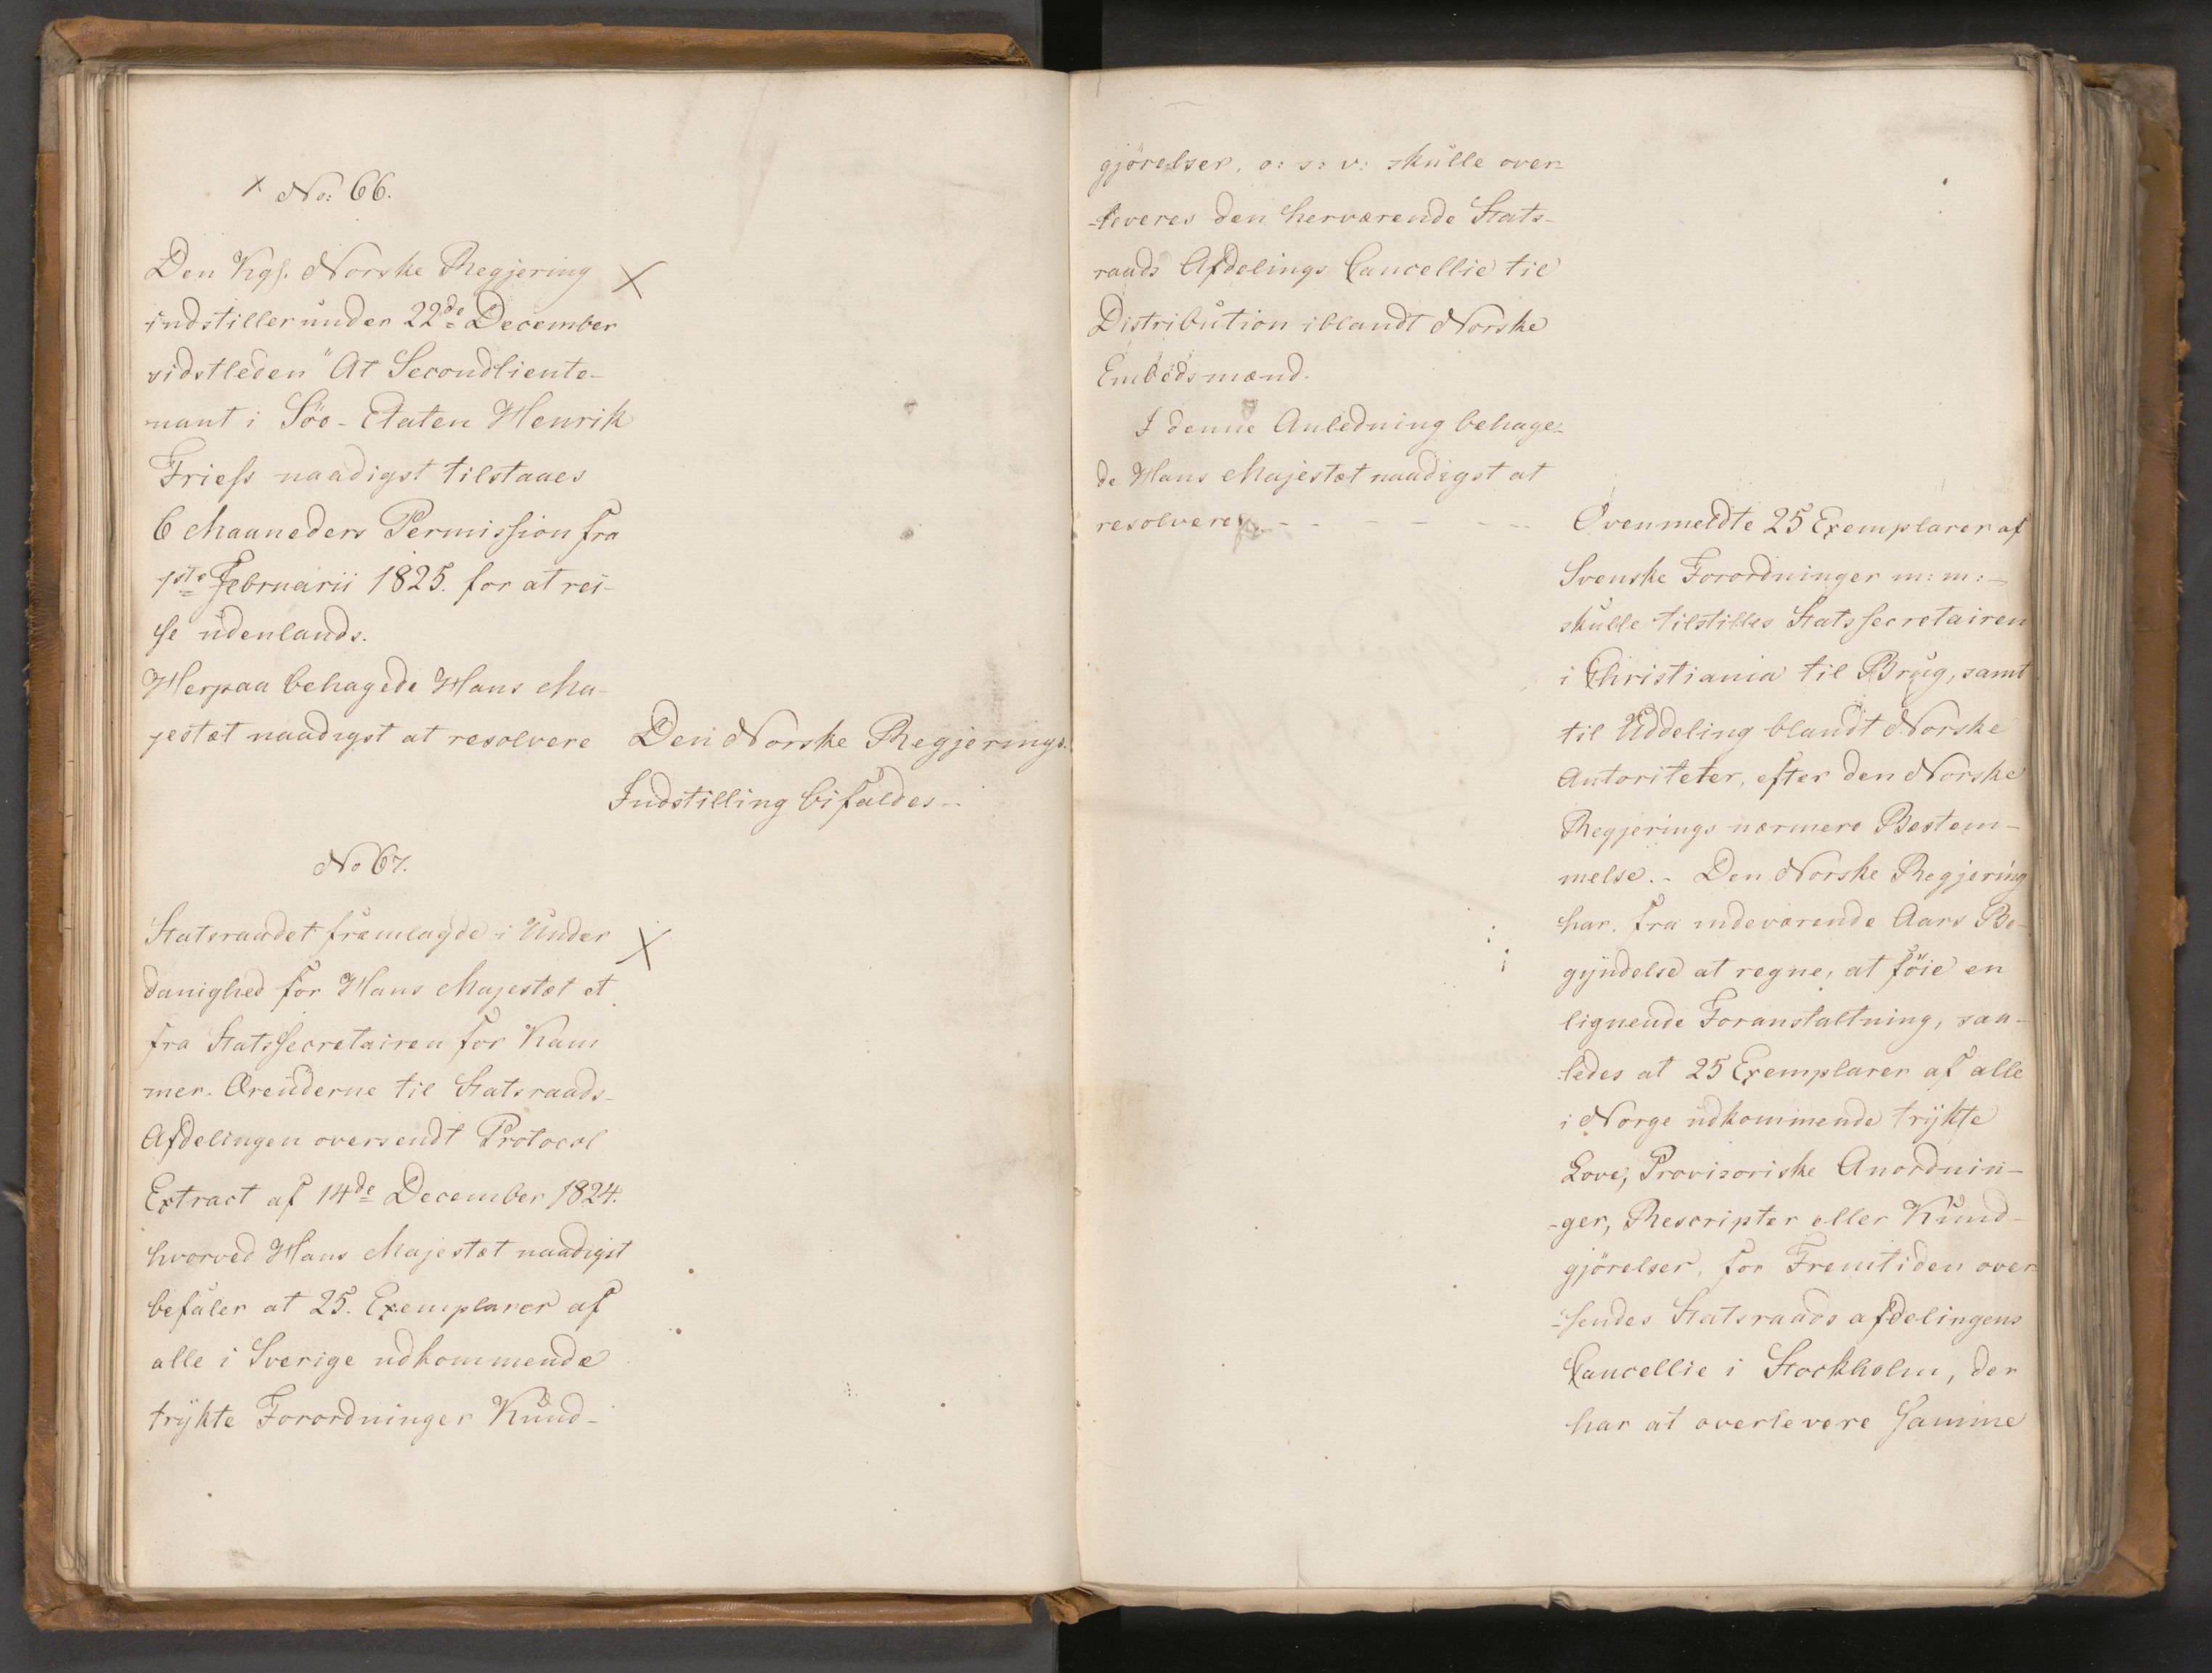 No: 66.
Den Kgl. Norske Regjering
indstiller under 22de December
sidstleden "At Secondliente-
nant i Söe-Etaten Henrik
Friess naadigst tilstaaes
6 Maaneders Permission fra
1ste Februarii 1825. for at rei-
se udenlands.
Herpaa behagede Hans Ma-
jestæt naadigst at resolvere
Den Norske Regjerings
Indstilling bifaldes.
No 67.
Statsraadet fremlagde i Under
danighed for Hans Majestæt et
fra Statssecretairen for Kam
mer-Ærenderne til Statsraads-
Afdelingen oversendt Protocol
Extract af 14de December 1824.
hvorved Hans Majestæt naadigst
befaler at 25. Exemplarer af
alle i Sverige udkommende
trykte Forordninger Kund-
gjörelser, o: s: v: skulle over-
-leveres den herværende Stats-
raads Afdelings Cancellie til
Distribution iblandt Norske
Embedsmænd.
I denne Anledning behage-
de Hans Majestæt naadigst at
resolvere
Ovenmeldte 25 Exemplarer af
Svenske Forordninger m: m:
skulle tilstilles Statssecretairen
i Christiania til Brug, samt
til Uddeling blandt Norske
Autoriteter, efter den Norske
Regjerings nærmere Bestem-
melse. - Den Norske Regjering
har, fra indeværende Aars Be-
gyndelse at regne, at föie en
lignende Foranstaltning, saa-
ledes at 25 Exemplarer af alle
i Norge udkommende trykte
Love, Provisoriske Anordnin-
-ger, Rescripter eller Kund-
gjörelser, for Fremtiden over
-sendes Statsraads afdelingens
Cancellie i Stockholm, der
har at overlevere Samme